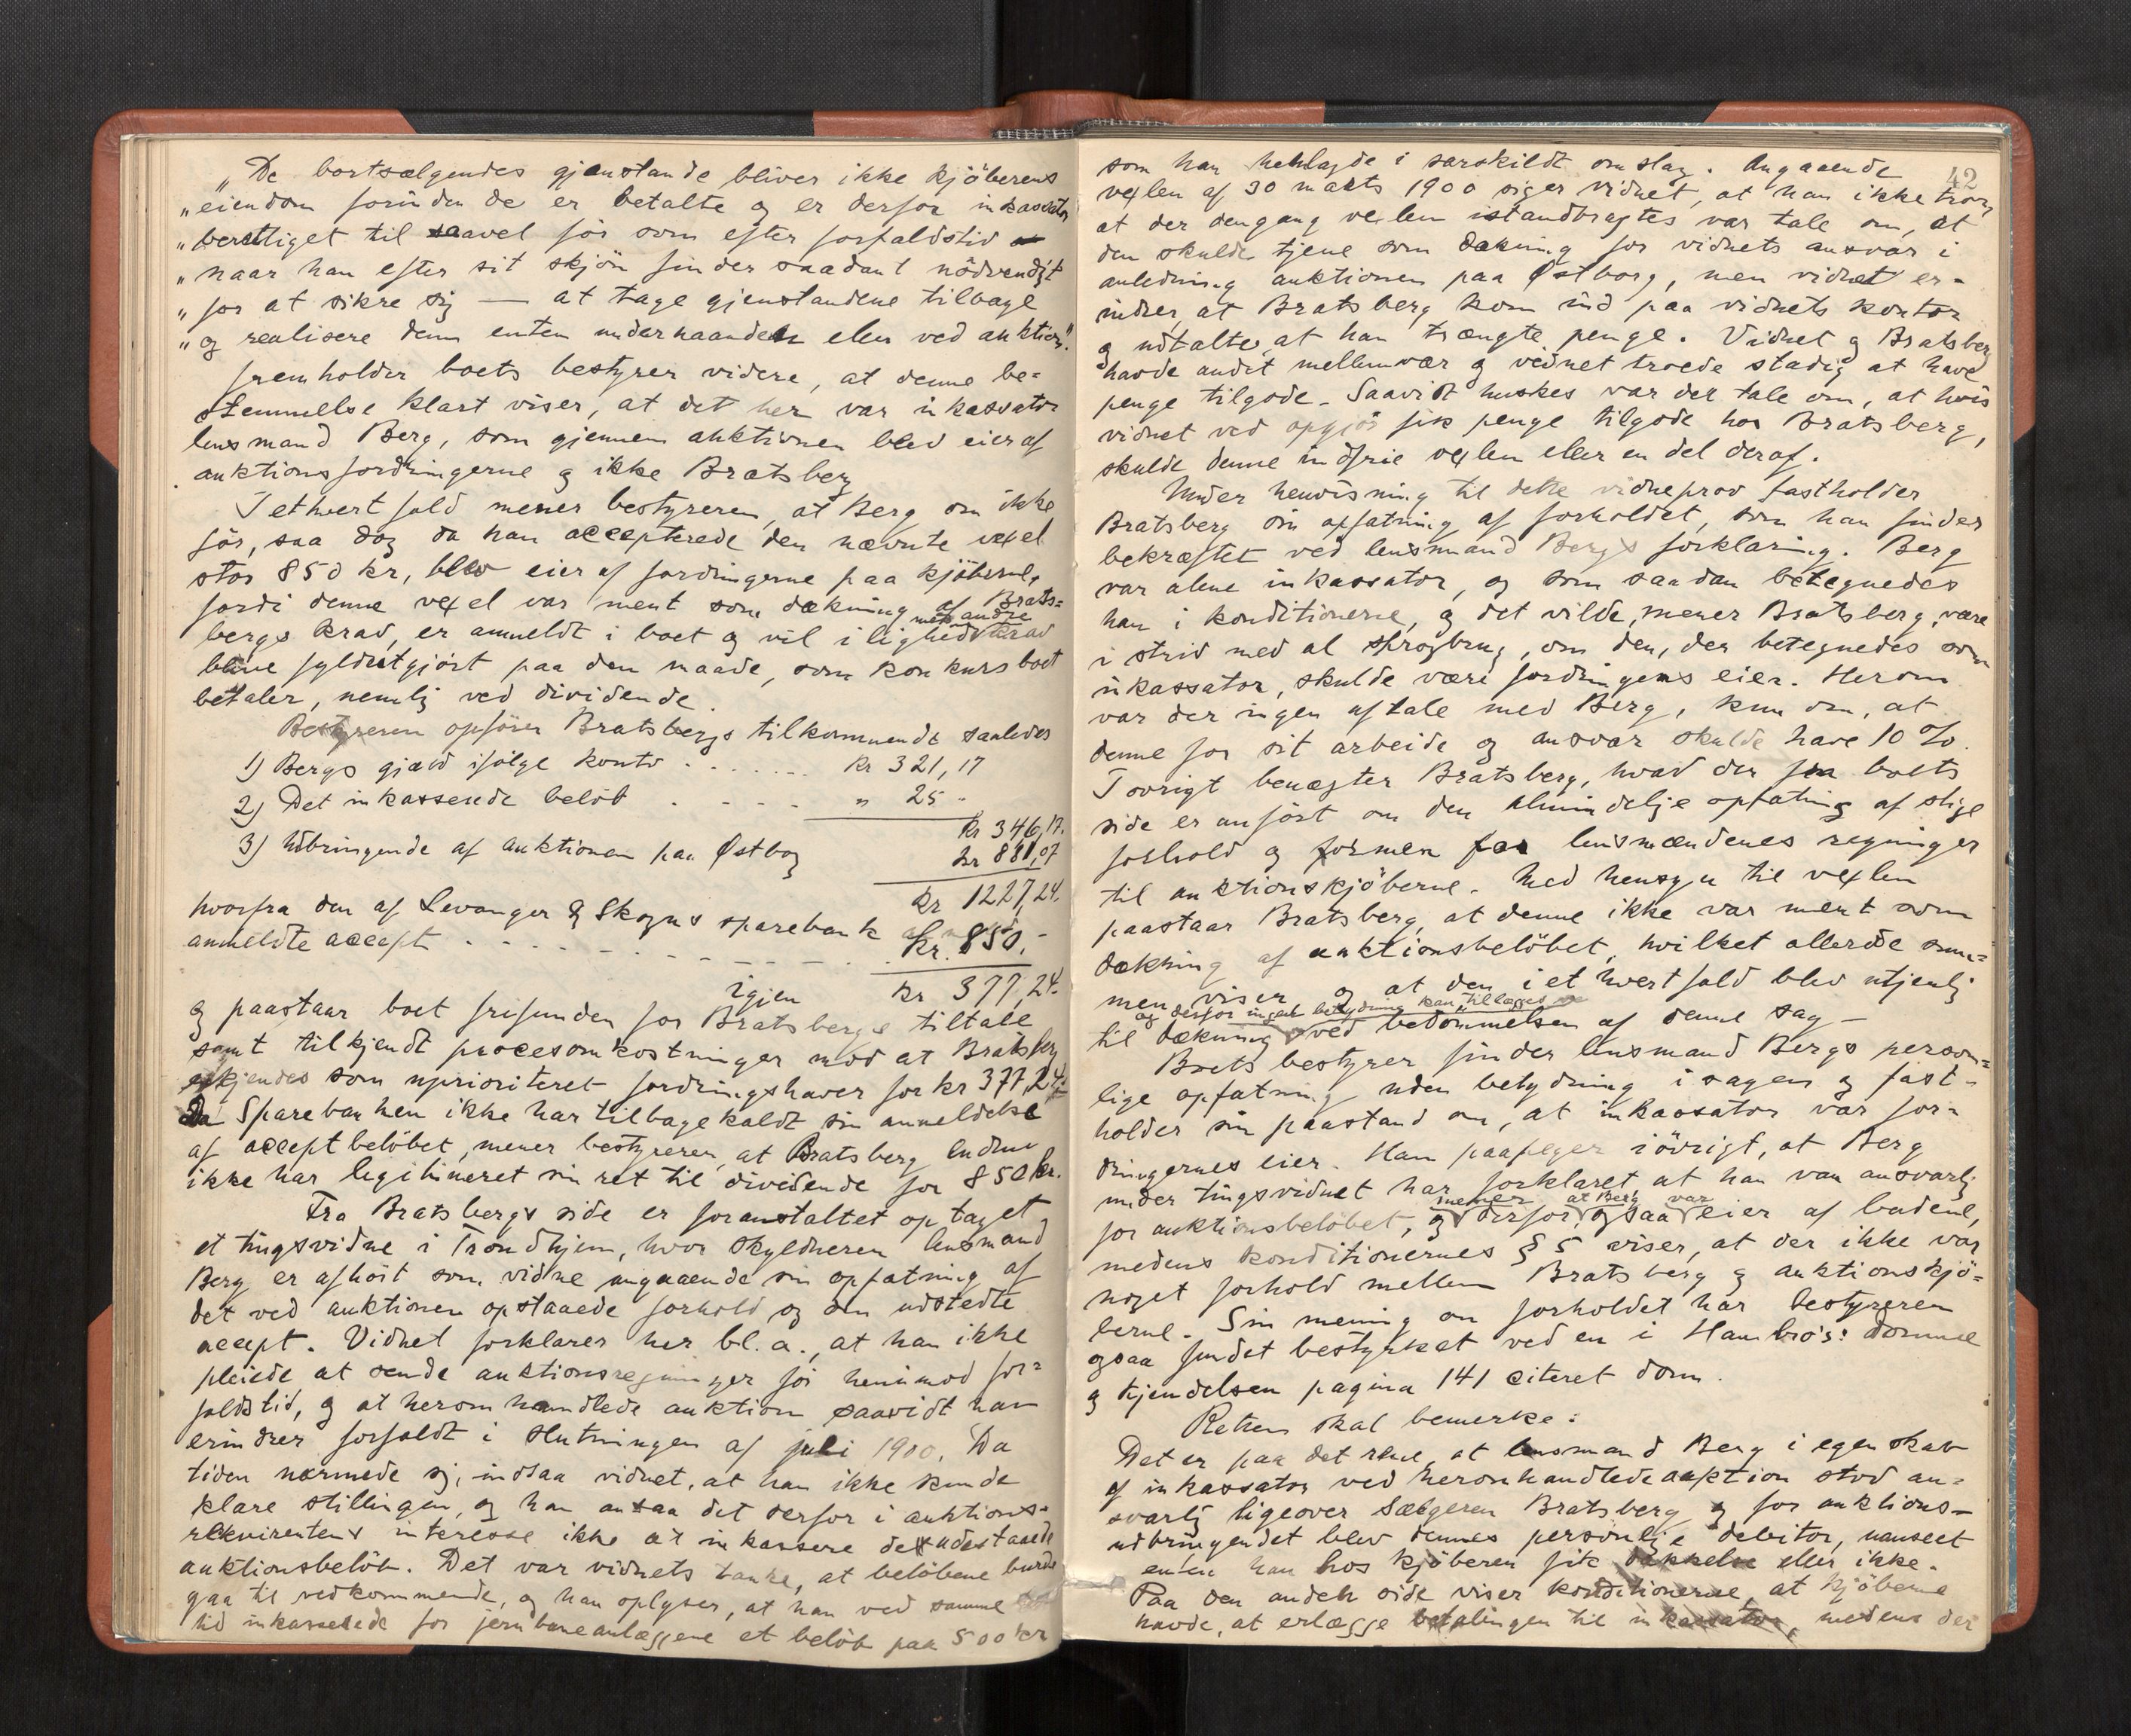 „De bortsælgendes gjenstande bliver ikke kjöberens
„eiendom forinden de er betalte og er derfor inkassator
„berettiget til saavel för som efter forfaldstid
„naar han efter sit skjön finder saadant nödvendigt
„for at sikre sig — at tage gjenstandene tilbage
„og realisere dem enten underhaanden eller ved auktion".
fremholder boets bestyrer videre, at denne be=
stemmelse klart viser, at det her var inkassator
lensmand Berg, som gjennem auktionen blev eier af
auktionsfordringerne og ikke Bratsberg
I ethvert fald mener bestyreren, at Berg om ikke
för, saa dog da han accepterede den nævnte vexel
stor 850 kr, blev eier af fordringerne paa kjöberne,
fordi denne vexel var ment som dækning af Brats=
bergs krav, er anmeldt i boet og vil i lighed med andre krav
blive fyldestgjort paa den maade, som konkursboet
betaler, nemlig ved dividende.
Bestyreren opförer Bratsbergs tilkommende saaledes
1) Bergs gjæld ifölge konto . . . . . . . kr 321,17
2) Det inkasserede belöb . . . . . „ 25 -
kr 346,17.
3) Udbringende af auktionen paa Östborg kr 881,07
kr 1227,24.
hvorfra den af Levanger & Skogns sparebank
anmeldte accept . . . . . . . . . kr. 850,-
igjen kr 377,24.
og paastaar boet frifunden for Bratsbergs tiltale
samt tilkjendt procesomkostninger mod at Bratsberg
erkjendes som uprioriteret fordringshaver for kr 377,24.
Da Sparebanken ikke har tilbagekaldt sin anmeldelse
af acceptbelöbet, mener bestyreren, at Bratsberg endnu
ikke har legitimeret sin ret til dividende for 850 kr.
Fra Bratsbergs side er foranstaltet optaget
et tingsvidne i Trondhjem, hvor skyldneren lensmand
Berg er afhört som vidne angaaende sin opfatning af
det ved auktionen opstaaede forhold og den udstedte
accept. Vidnet forklarer her bl. a., at han ikke
pleiede at sende auktionsregninger för henimod for=
faldstid, og at heromhandlede auktion saavidt han
erindrer forfaldt i slutningen af juli 1900. Da
tiden nærmede sig, indsaa vidnet, at han ikke kunde
klare stillingen, og han ansaa det derfor i auktions=
rekvirentens interesse ikke at inkassere det udestaaende
auktionsbelöb. Det var vidnets tanke, at belöbene burde
gaa til vedkommende, og han oplyser, at han ved samme
tid inkasserede for jernbaneanlæggene et belöb paa 500 kr
42
som han henlagde i særskildt omslag. Angaaende
vexlen af 30 marts 1900 siger vidnet, at han ikke tror,
at der dengang vexlen istandbragtes var tale om, at
den skulde tjene som dækning for vidnets ansvar i
anledning auktionen paa Östborg, men vidnet er=
indrer, at Bratsberg kom ind paa vidnets kontor
og udtalte, at han trængte penge. Vidnet og Bratsberg
havde andet mellemvær og vidnet troede stadig at have
penge tilgode. Saavidt huskes var der tale om, at hvis
vidnet ved opgjör fik penge tilgode hos Bratsberg,
skulde denne indfrie vexlen eller en del deraf.
Under henvisning til dette vidneprov fastholder
Bratsberg sin opfatning af forholdet, som han finder
bekræftet ved lensmand Bergs forklaring. Berg
var alene inkassator, og som saadan betegnedes
han i konditionerne, og det vilde, mener Bratsberg, være
i strid med al sprogbrug, om den, der betegnedes som
inkassator, skulde være fordringens eier. Herom
var der ingen aftale med Berg, kun om, at
denne for sit arbeide og ansvar skulde have 10 %.
I övrigt benægter Bratsberg, hvad der fra boets
side er anfört om den almindelige opfatning af slige
forhold og formen for lensmændenes regninger
til auktionskjöberne. Med hensyn til vexlen
paastaar Bratsberg, at denne ikke var ment som
dækning af auktionsbelöbet, hvilket allerede sum=
men viser, og at den i ethvert fald blev utjenlig
til dækning og derfor ingen betydning kan tillægges ved bedömmelsen af denne sag —
Boets bestyrer finder lensmand Bergs person=
lige opfatning uden betydning i sagen og fast=
holder sin paastand om, at inkassator var for=
dringernes eier. Han paapeger iövrigt, at Berg
under tingsvidnet har forklaret at han var ansvarlig
for auktionsbelöbet, og mener at Berg derfor ogsaa var eier af budene,
medens konditionernes § 5 viser, at der ikke var
noget forhold mellem Bratsberg og auktionskjö=
berne. Sin mening om forholdet har bestyreren
ogsaa fundet bestyrket ved en i Hambro's: domme
og kjendelsen pagina 141 citeret dom.
Retten skal bemerke:
Det er paa det rene, at lensmand Berg i egenskab
af inkassator ved heromhandlede auktion stod an=
svarlig ligeover sælgeren Bratsberg og for auktions=
udbringendet blev dennes personlige debitor, uanseet
enten han hos kjöberen fik dækkelse eller ikke.
Paa den anden side viser konditionerne, at kjöberne
havde, at erlægge betalingen til inkassator, medens der